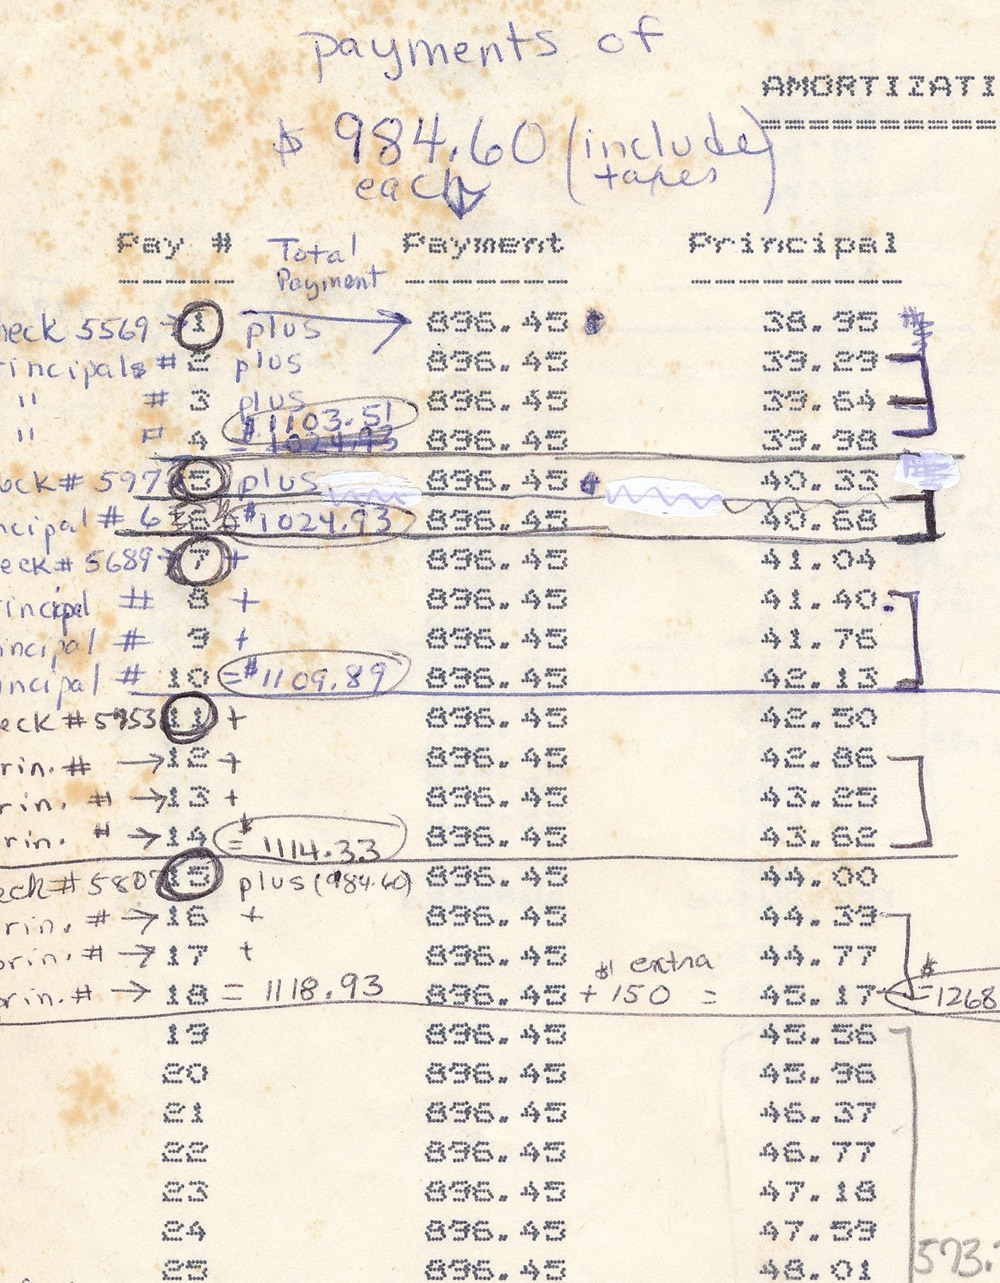 payments of
AMORTIZATI
$ 984.60 (include taxes)
each
Pay # Total Payment Payment Principal
heck 5569 → 1 plus 896.45 38.95
rincipals # 2 plus 896.45 39.29
" # 3 plus 896.45 39.64
$1103.51
" # 4 = 1024.93 896.45 39.98
ck# 597 5 plus 896.45 40.33
ncipal # 6 6 = $1024.93 896.45 40.68
eck# 5689 → 7 + 896.45 41.04
rincipal # 8 + 896.45 41.40
incipal # 9 + 896.45 41.76
ncipal # 10 = $1109.89 896.45 42.13
eck #5953 11 + 896.45 42.50
rin. # → 12 + 896.45 42.86
rin. # → 13 + 896.45 43.25
rin. # → 14 = $1114.33 896.45 43.62
eck#5807 15 plus (984.60) 896.45 44.00
rin. # → 16 + 896.45 44.39
prin. # → 17 + 896.45 44.77
$ extra
orin. # → 18 = 1118.93 896.45 + 150 = 45.17 = $1268
19 896.45 45.56
20 896.45 45.96
21 896.45 46.37
22 896.45 46.77
23 896.45 47.18
24 896.45 47.59
25 896.45 48.01
573.